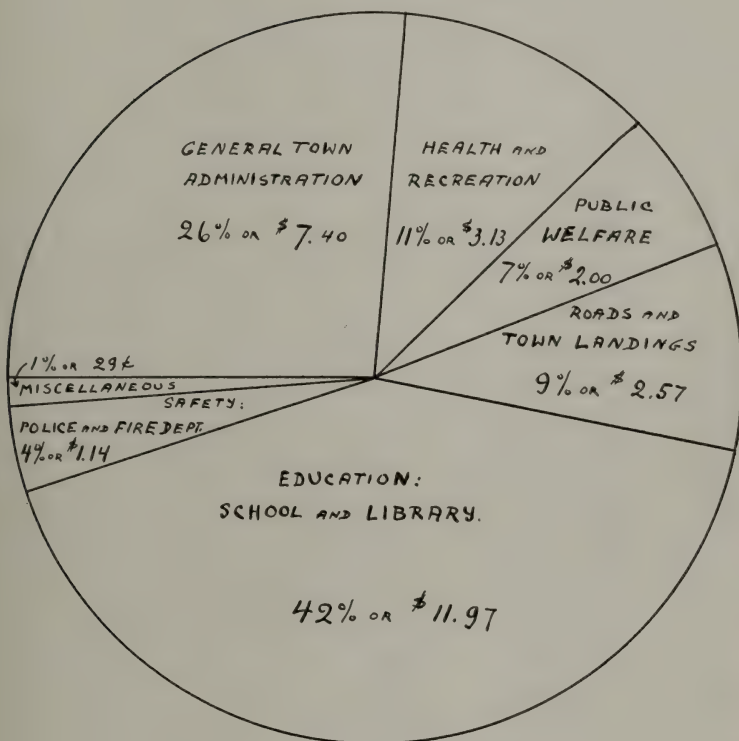 GENERAL TOWN
ADMINISTRATION
26% OR $7.40
HEALTH AND
RECREATION
11% OR $3.13
PUBLIC
WELFARE
7% OR $2.00
ROADS AND
TOWN LANDINGS
9% OR $2.57
1% OR 29¢
MISCELLANEOUS
SAFETY:
POLICE AND FIRE DEPT.
4% OR $1.14
EDUCATION:
SCHOOL AND LIBRARY.
42% OR $11.97